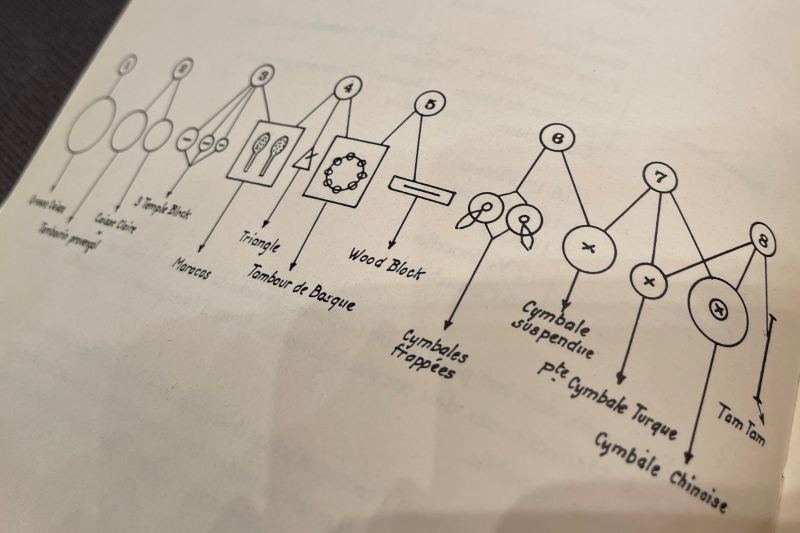 1
2
3
4
5
6
7
8
Grosse Caisse
Tambourin provençal
Caisse Claire
3 Temple Block
Maracas
Triangle
Tambour de Basque
Wood Block
Cymbales
frappées
Cymbale
suspendue
pte Cymbale Turque
Cymbale Chinoise
Tam Tam